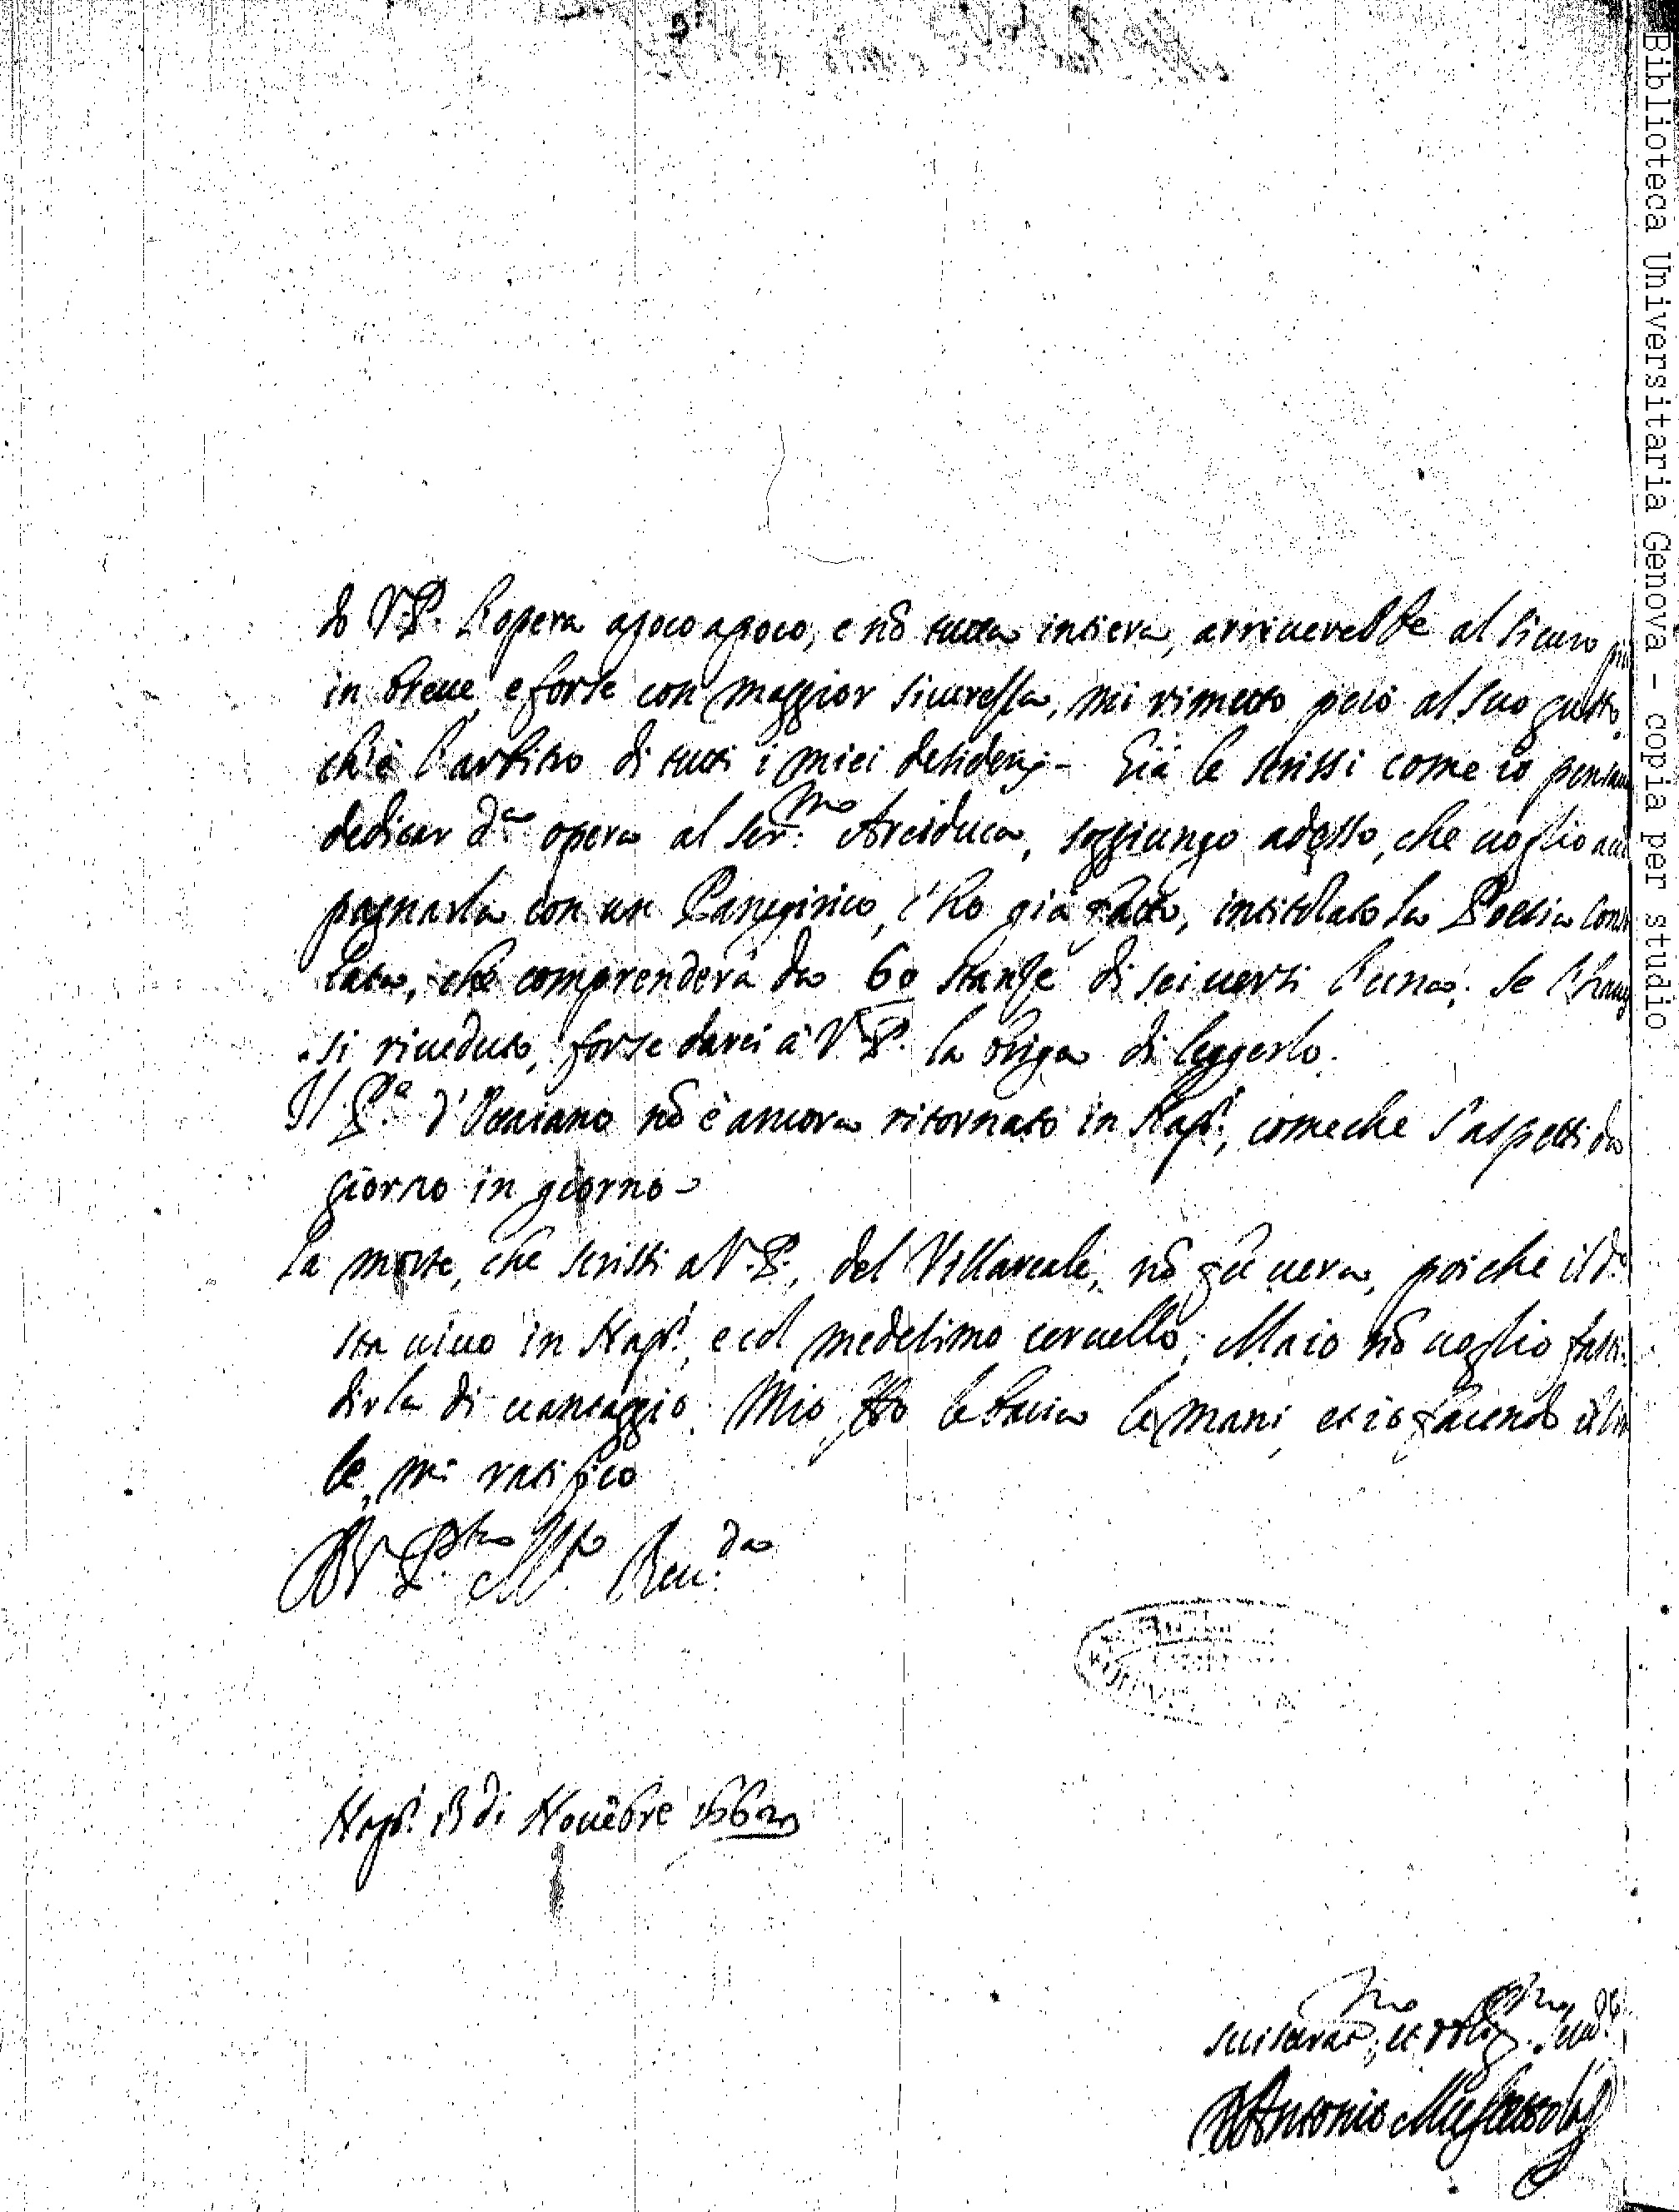 do V.P. l'opera apoco apoco, e nõ tutta intiera, arriuerebbe al sicuro più
in breue, e forse con maggior sicurezza, mi rimetto però al suo gusto,
ch'è l'arbitro di tutti i miei desiderij. Già le scrissi come io
dedicar d.ª opera al Ser.mo Arciduca, soggiungo adesso, che uoglio
pagnarla con un Panegirico, c'ho già fatto, intitolato la Poesia
lata, che comprenderà da 60 stanze di sei uersi l'una. Se l'
si riueduto, forse darei à V.P. la briga di leggerlo.
Il P.e d'Ottaiano nõ è ancora ritornato in Nap.i, comeche s'aspetti da
giorno in giorno
La morte, che scrissi a V.P., del Villareale, nõ fù uera, poiche il d.o
sta uiuo in Nap.i, e col medesimo ceruello; Ma io nõ uoglio fasti-
dirla di uantaggio. Mio le bacia le mani, et io facendo
le, mi ratifico
D V. P.tà M.to Reu.da
Nap.i 13 di Nouẽbre 1662
suiscerat.mo, et oblig.mo
Antonio Muscettola
Biblioteca Universitaria Genova - copia per studio